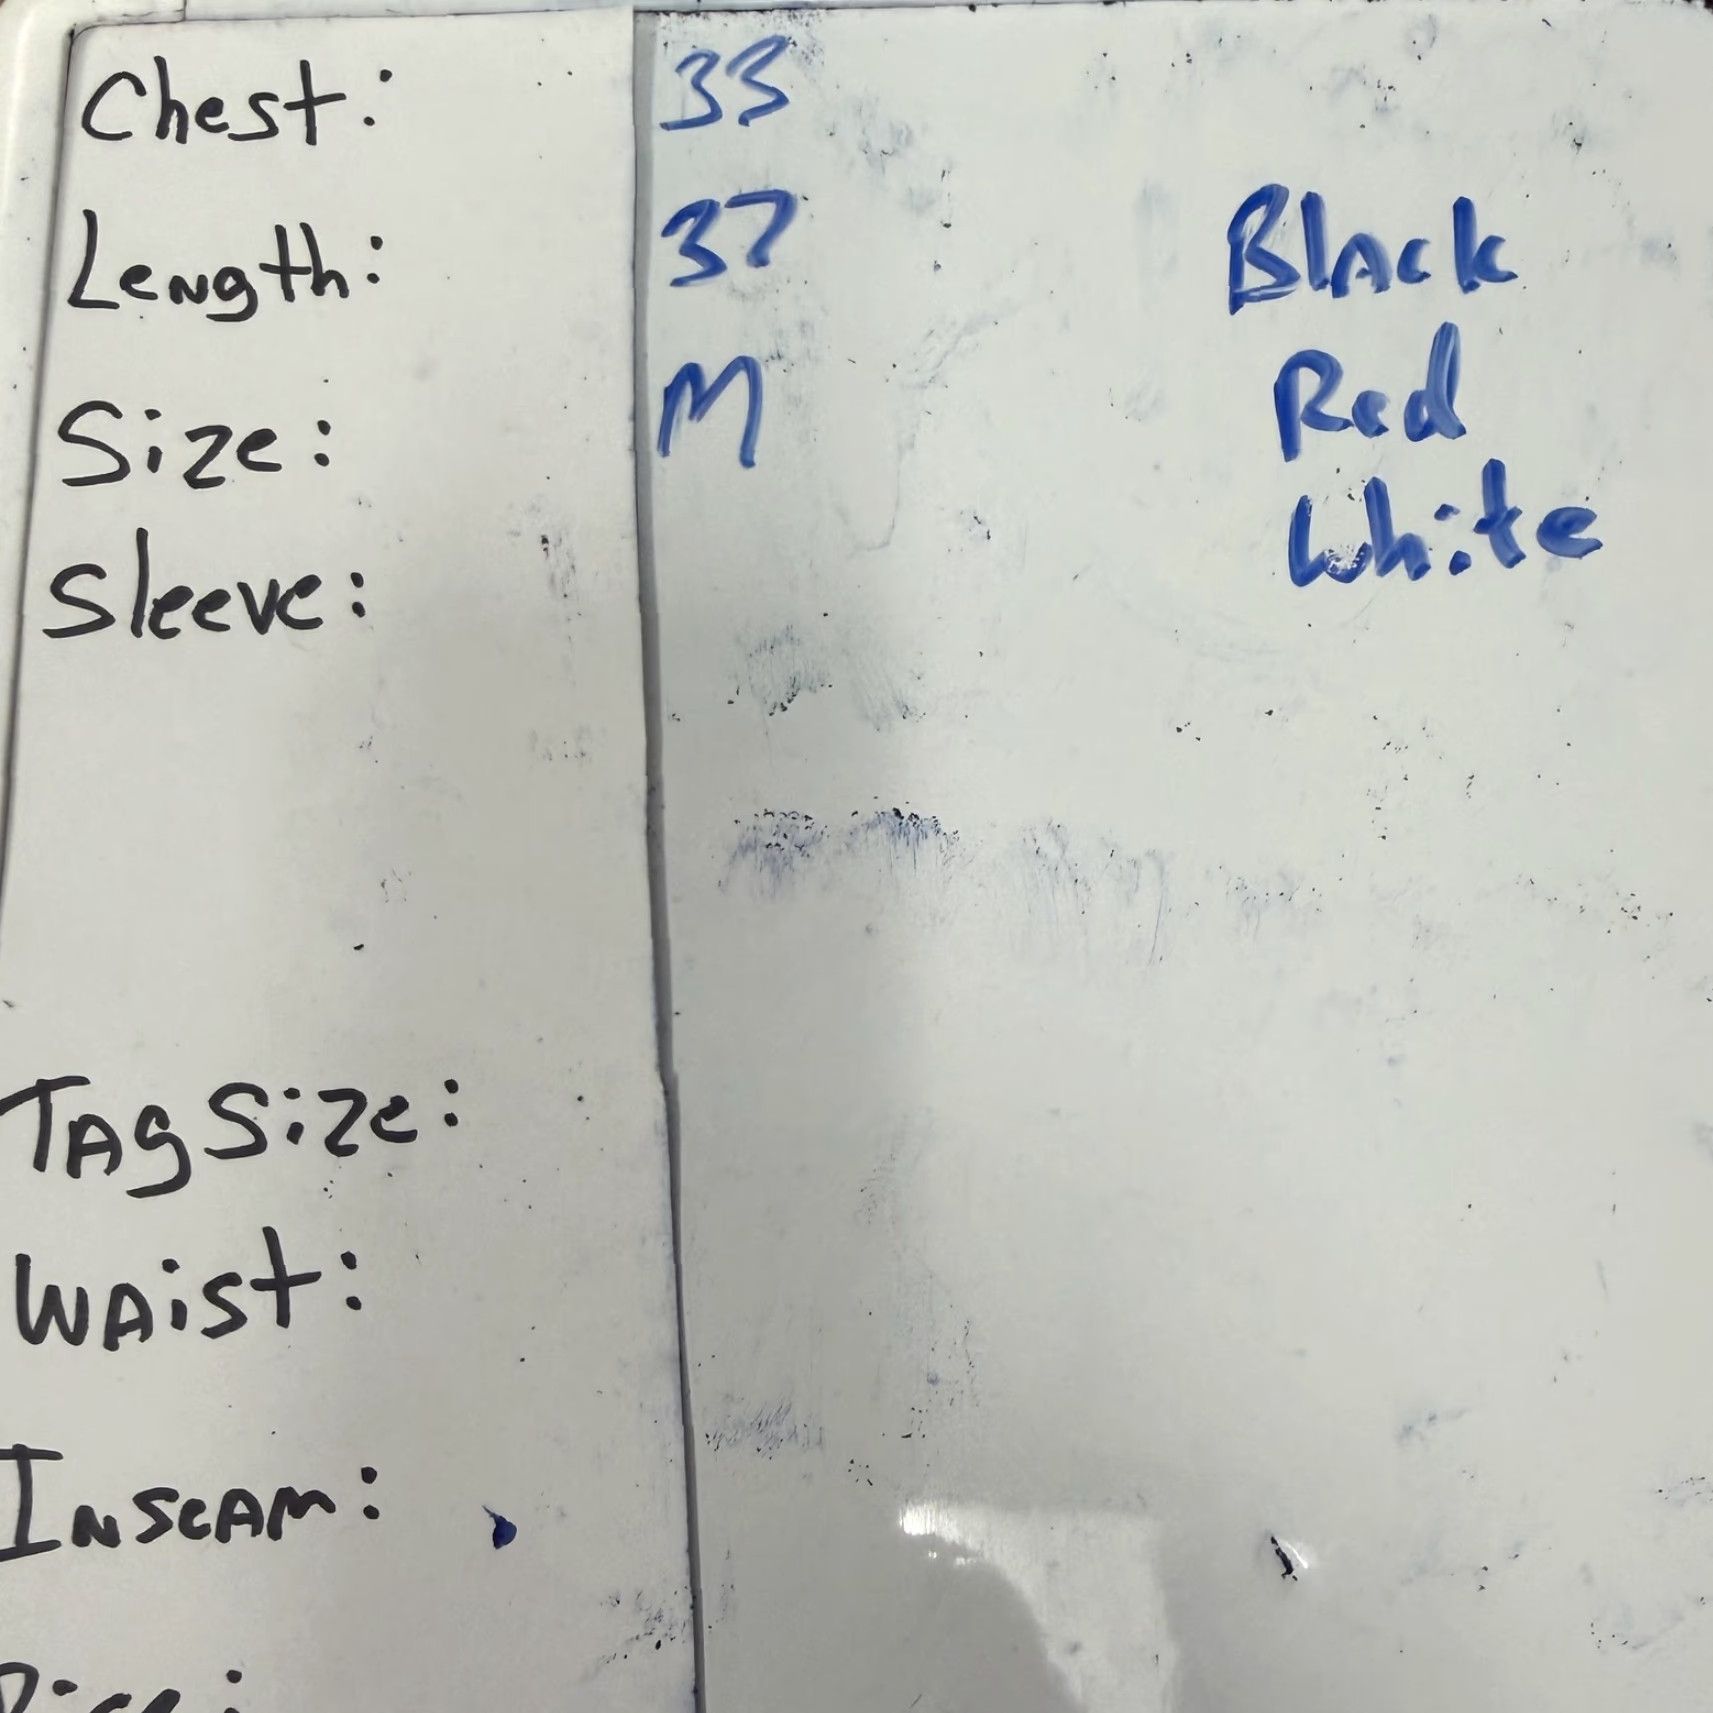 Chest: 33
Length: 37 Black
Size: M Red
Sleeve: White
Tag Size:
Waist:
Inseam: